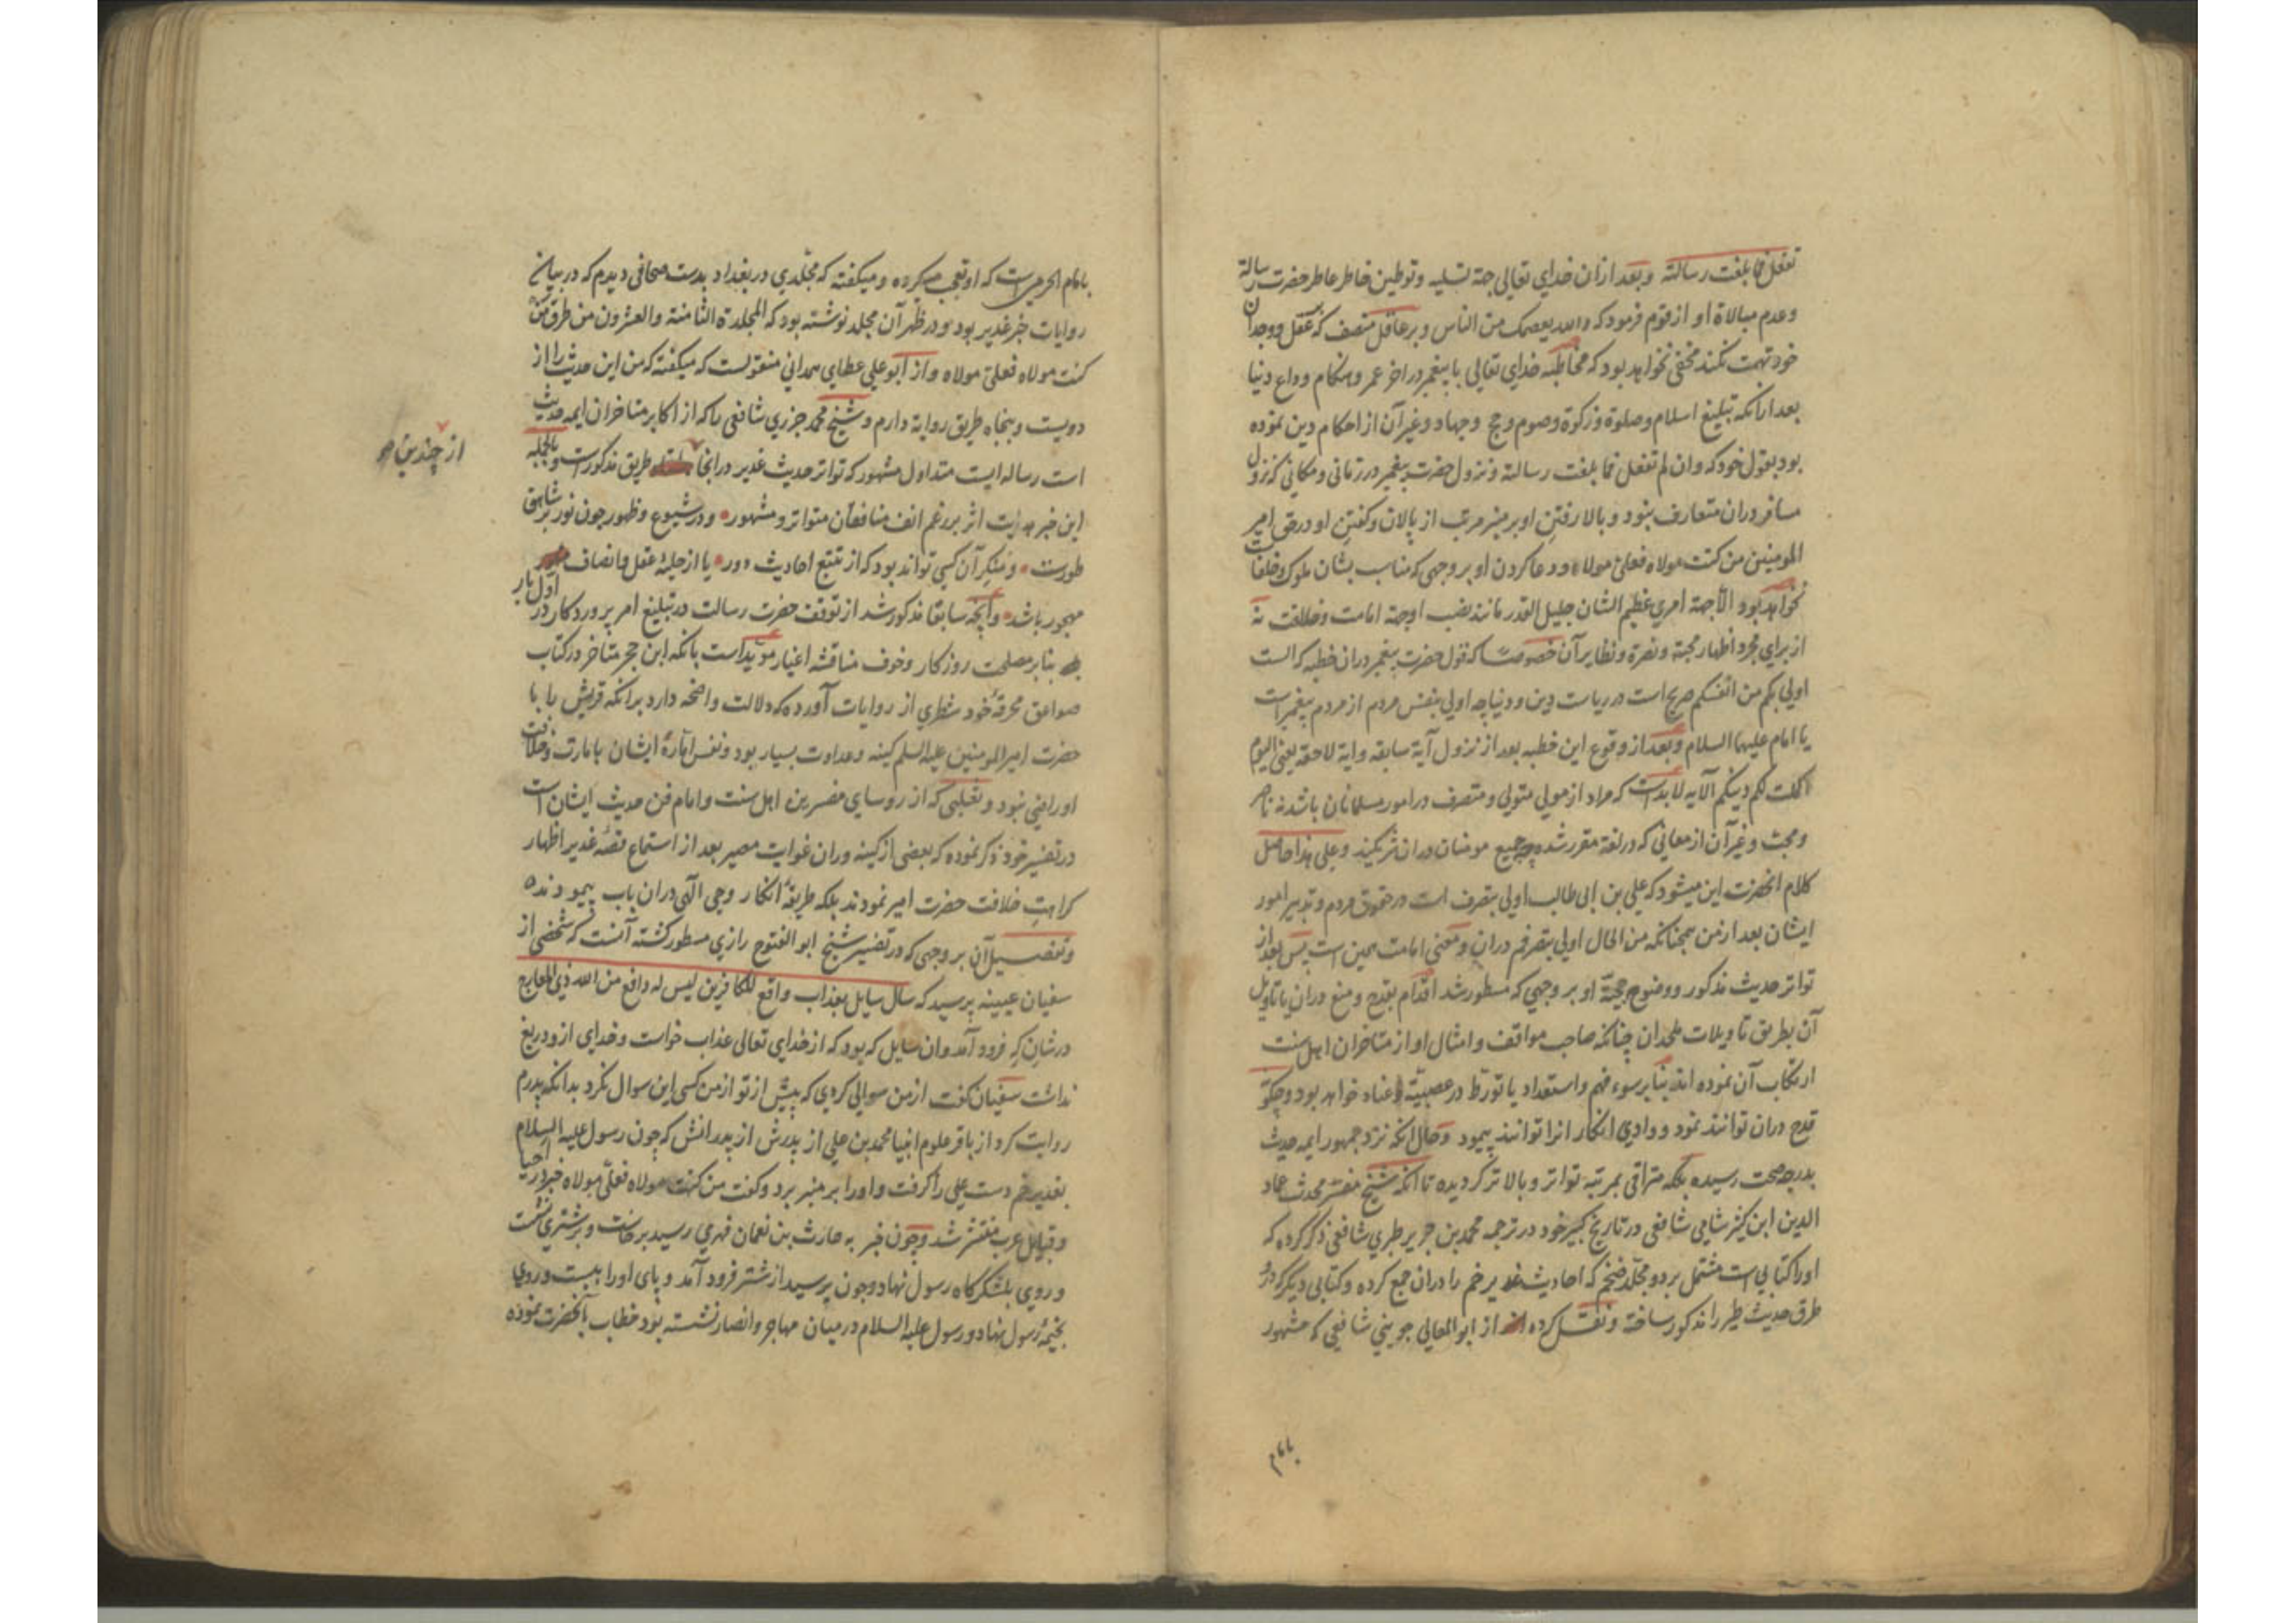 تفعل فما بلغت رسالته وبعد ازان خدای تعالی جهة تسلیه وتوطین خاطر عاطر حضرت رسالة
وعدم مبالاة او از قوم فرمود که والله یعصمک من الناس وبر عاقل منصف که عقل ووجدان
خود تهمت نکند مخفی نخواهد بود که مخاطبه خدای تعالی با پیغمبر در اخر عمر وهنکام وداع دنیا
بعد ازانکه تبلیغ اسلام وصلوة وزکوة وصوم وحج وجهاد وغیر آن از احکام دین نموده
بود بقول خود که وان لم تفعل فما بلغت رسالته ونزول حضرت پیغمبر در زمانی ومکانی که نزول
مسافر دران متعارف نبود وبالا رفتن او بر منبر مرتب از پالان وکفتن او در حق امیر
المومنین من کنت مولاه فعلی مولاه ودعا کردن او بر وجهی که مناسب بشان ملوک وخلفاست
نخواهد بود الا جهة امری عظیم الشان جلیل القدر مانند نصب او جهة امامت وخلافت نه
از برای مجرد اظهار محبة ونصرة ونظایر آن خصوصا که قول حضرت پیغمبر دران خطبه که الست
اولی بکم من انفسکم صریح است در ریاست دین ودنیا چه اولی بنفس مردم از مردم پیغمبر است
یا امام علیهما السلام وبعد از وقوع این خطبه بعد از نزول آیة سابقه وایة لاحقه یعنی الیوم
اکملت لکم دینکم الآیه لابد است که مراد از مولی متولی ومتصرف در امور مسلمانان باشد نه ناصر
ومحب وغیر آن از معانی که در لغة مقرر شده جمیع مومنان دران شریکند وعلی هذا حاصل
کلام انحضرت این میشود که علی بن ابی طالب اولی بتصرف است در حقوق مردم وتدبیر امور
ایشان بعد از من همچنانکه من الحال اولی بتصرفم دران ومعنی امامت همین است پس بعد از
تواتر حدیث مذکور ووضوح حجیة او بر وجهی که مسطور شد اقدام بقدح ومنع دران یا تاویل
آن بطریق تاویلات ملحدان چنانکه صاحب مواقف وامثال او از متاخران اهل سنت
ارتکاب آن نموده اند بنابر سوء فهم واستعداد یا تورط در عصبیة وعناد خواهد بود وچکونه
قدح دران توانند نمود ووادی انکار انرا توانند پیمود وحال انکه نزد جمهور ایمه حدیث
بدرجه صحت رسیده بلکه مترقی بمرتبه تواتر وبالاتر کردیده تا انکه شیخ مفسر محدث عماد
الدین ابن کثیر شامی شافعی در تاریخ کبیر خود در ترجمه محمد بن جریر طبری شافعی ذکر کرده که
او را کتابی است مشتمل بر دو مجلد ضخم که احادیث غدیر خم را دران جمع کرده وکتابی دیکر که در
طرق حدیث طیر را مذکور ساخته ونقل کرده از ابو المعالی جوینی شافعی که مشهور
بامام
بامام الحرمین است که او تعجب میکرده ومیکفته که مجلدی در بغداد بدست صحافی دیدم که در بیان
روایات خبر غدیر بود ودر ظهر آن مجلد نوشته بود که المجلدة الثامنة والعشرون من طرق من
کنت مولاه فعلی مولاه واز ابو علی عطای همدانی منقولست که میکفته که من این حدیث را از
دویست وپنجاه طریق روایة دارم وشیخ محمد جزری شافعی را که از اکابر متاخران ایمه حدیث
است رساله ایست متداول مشهور که تواتر حدیث غدیر در انجا طریق مذکور است وبالجمله
از چندین
این خبر هدایت اثر بر رغم انف منافقان متواتر ومشهور ودر شیوع وظهور چون نور بر شاهق
طورست ومنکر آن کسی تواند بود که از تتبع احادیث دور یا از حلیه عقل وانصاف
مهجور باشد وآنچه سابقا مذکور شد از توقف حضرت رسالت در تبلیغ امر پروردکار در اول بار
بنابر مصلحت روزکار وخوف مناقشه اغیار موید است بانکه ابن حجر متاخر در کتاب
صواعق محرقهٔ خود شطری از روایات آورده که دلالت واضحه دارد برانکه قریش را با
حضرت امیر المومنین علیه السلم کینه وعداوت بسیار بود ونفس امارهٔ ایشان بامارت وخلافت
او راضی نبود وثعلبی که از روسای مفسرین اهل سنت وامام فن حدیث ایشان است
در تفسیر خود ذکر نموده که بعضی از کینه وران غوایت مصیر بعد از استماع قصهٔ غدیر اظهار
کراهت خلافت حضرت امیر نمودند بلکه طریقهٔ انکار وحی الهی دران باب پیمودند
وتفصیل آن بر وجهی که در تفسیر شیخ ابو الفتوح رازی مسطور کشته آنست که شخصی از
سفیان عیینه پرسید که سال سایل بعذاب واقع للکافرین لیس له دافع من الله ذی المعارج
در شان که فرود آمد وان سایل که بود که از خدای تعالی عذاب خواست وخدای ازو دریغ
نداشت سفیان کفت از من سوالی کردی که پیش از تو از من کسی این سوال نکرد بدانکه پدرم
روایت کرد از باقر علوم انبیا محمد بن علی از پدرش از پدرانش که چون رسول علیه السلام
بغدیر خم دست علی را کرفت واو را بر منبر برد وکفت من کنت مولاه فعلی مولاه خبر در احیا
وقبایل عرب منتشر شد وچون خبر به حارث بن نعمان فهری رسید برخاست وبر شتری نشست
وروی بلشکرکاه رسول نهاد وچون برسید از شتر فرود آمد وپای او را ببست وروی
بخیمهٔ رسول نهاد ورسول علیه السلام درمیان مهاجر وانصار نشسته بود خطاب بآنحضرت نموده